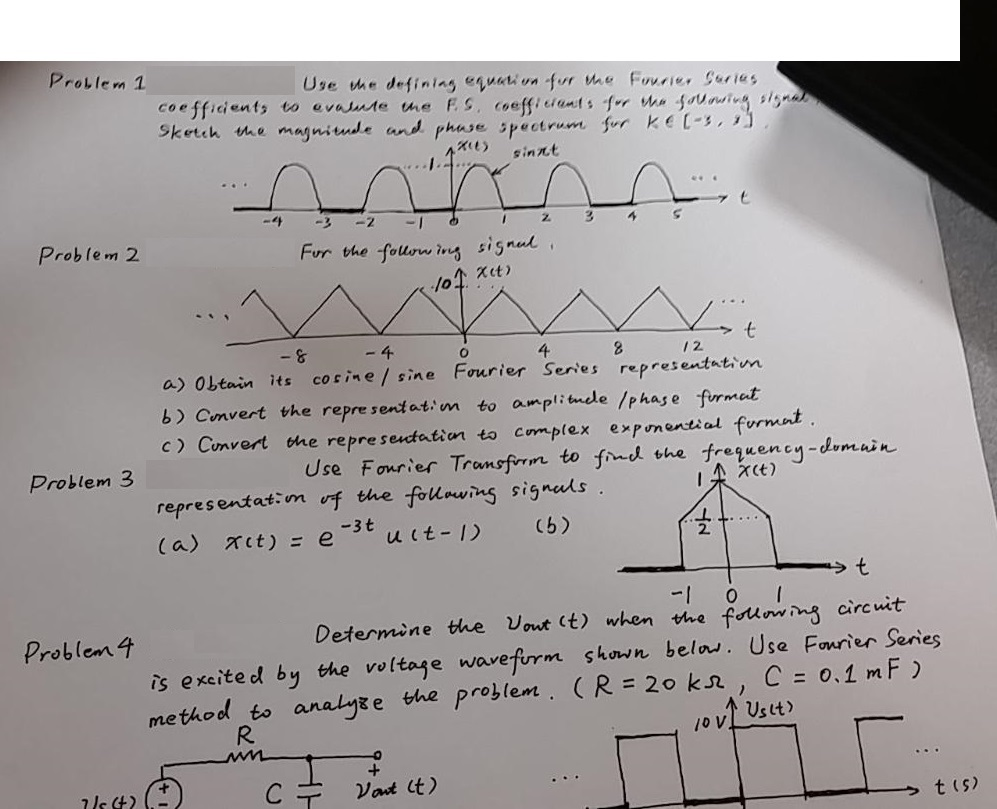 Problem 1 Use the defining equation for the Fourier Series
coefficients to evalute the F.S. coefficients for the following signal,
Sketch the magnitude and phase spectrum for k ∈ [-3, 3].
x(t) sinπt
1
... ...
-4 -3 -2 -1 0 1 2 3 4 5 t
Problem 2 For the following signal,
10 x(t)
... ...
t
-8 -4 0 4 8 12
a) Obtain its cosine / sine Fourier Series representation
b) Convert the representation to amplitude / phase format
c) Convert the representation to complex exponential format.
Problem 3 Use Fourier Transform to find the frequency-domain
representation of the following signals.
1 x(t)
(a) x(t) = e^{-3t} u(t-1) (b)
1/2
t
-1 0 1
Problem 4 Determine the Vout(t) when the following circuit
is excited by the voltage waveform shown below. Use Fourier Series
method to analyze the problem. (R = 20 kΩ, C = 0.1 mF)
R 10 V Vs(t)
+ ... ...
Vs(t) + - C Vout(t) t(s)